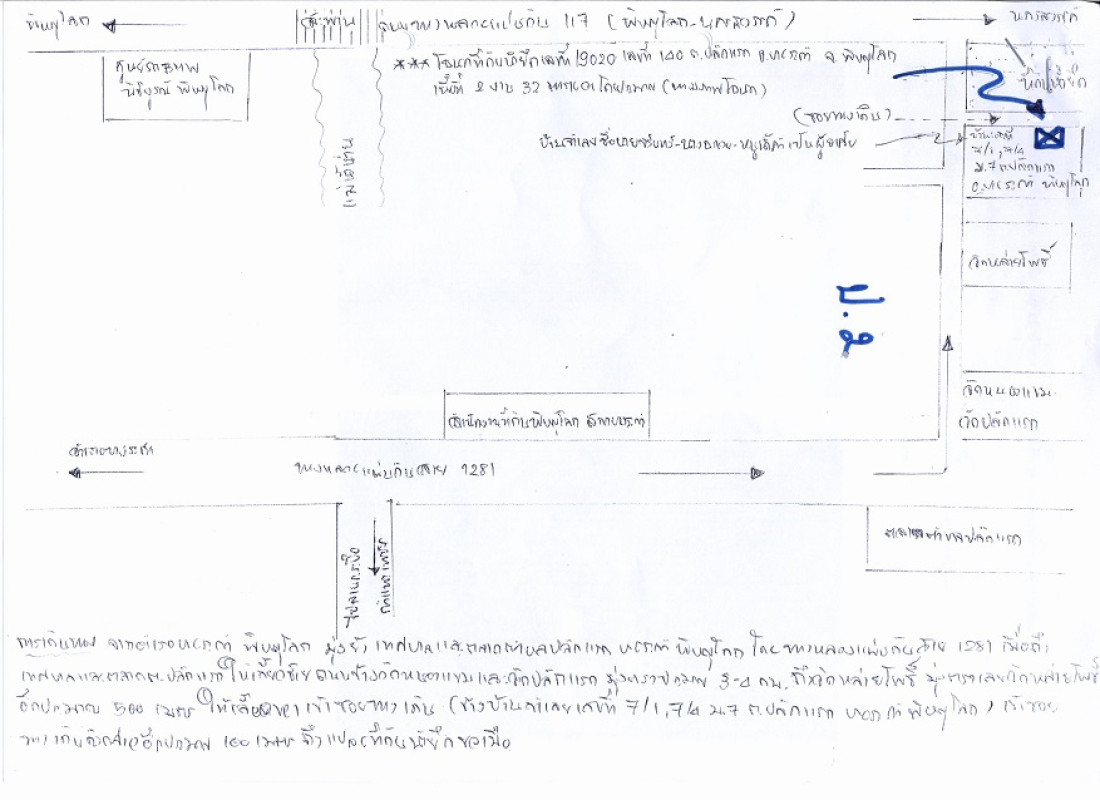 พิษณุโลก
สะพาน
ถนนทางหลวงแผ่นดิน 117 (พิษณุโลก-นครสวรรค์)
นครสวรรค์
*** โฉนดที่ดินที่ยึดเลขที่ 19020 เลขที่ 140 ต.ปลักแรด อ.บางระกำ จ.พิษณุโลก
เนื้อที่ 2 งาน 32 ตารางวาโดยประมาณ
ที่ดินที่ยึด
(ซอยทางเดิน)
แม่น้ำน่าน
7/1, 7/4
ม.7 ต.ปลักแรด
อ.บางระกำ พิษณุโลก
วัดหล่ายโพธิ์
สำนักงานที่ดินพิษณุโลก สาขาบางระกำ
วัดหนองแขม
วัดปลักแรด
อำเภอบางระกำ
ทางหลวงแผ่นดินสาย 1281
กำแพงเพชร
ตำบลปลักแรด
การเดินทาง จากอำเภอบางระกำ พิษณุโลก มุ่งยัง เทศบาลและตลาดตำบลปลักแรด บางระกำ พิษณุโลก โดยทางหลวงแผ่นดินสาย 1281 เมื่อถึง
เทศบาลและตลาด ต.ปลักแรด ให้เลี้ยวซ้าย ถนนข้างวัดหนองแขมและวัดปลักแรด มุ่งตรงประมาณ 3-4 กม. ถึงวัดหล่ายโพธิ์ มุ่งตรงเลยวัดหล่ายโพธิ์
อีกประมาณ 500 เมตร ให้เลี้ยวขวา เข้าซอยทางเดิน (ข้างบ้านจำเลยเลขที่ 7/1, 7/4 ม.7 ต.ปลักแรด บางระกำ พิษณุโลก) เข้าซอย
ทางเดินอีกประมาณ 100 เมตร ถึงแปลงที่ดินที่ยึด ขวามือ